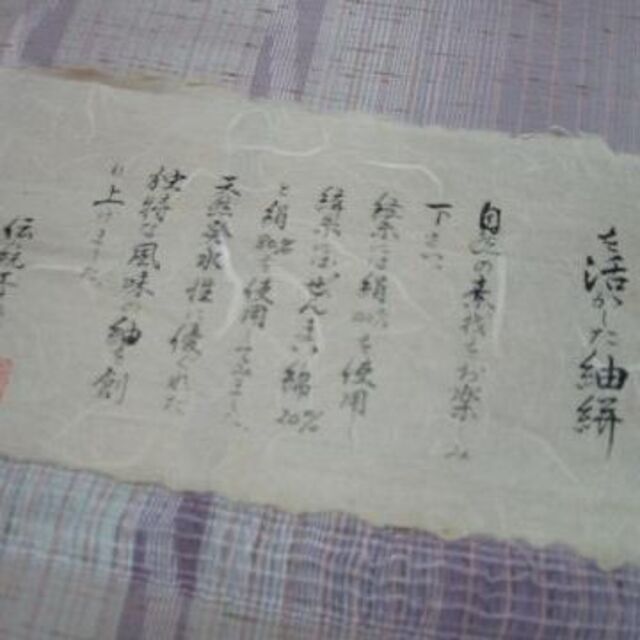 を活かした紬絣
自然の素材をお楽しみ
下さい
経糸には絹糸を使用し
緯糸にはぜんまい綿
と絹糸を使用
天然水性に優れた
独特な風味の紬を創
り上げました
伝統